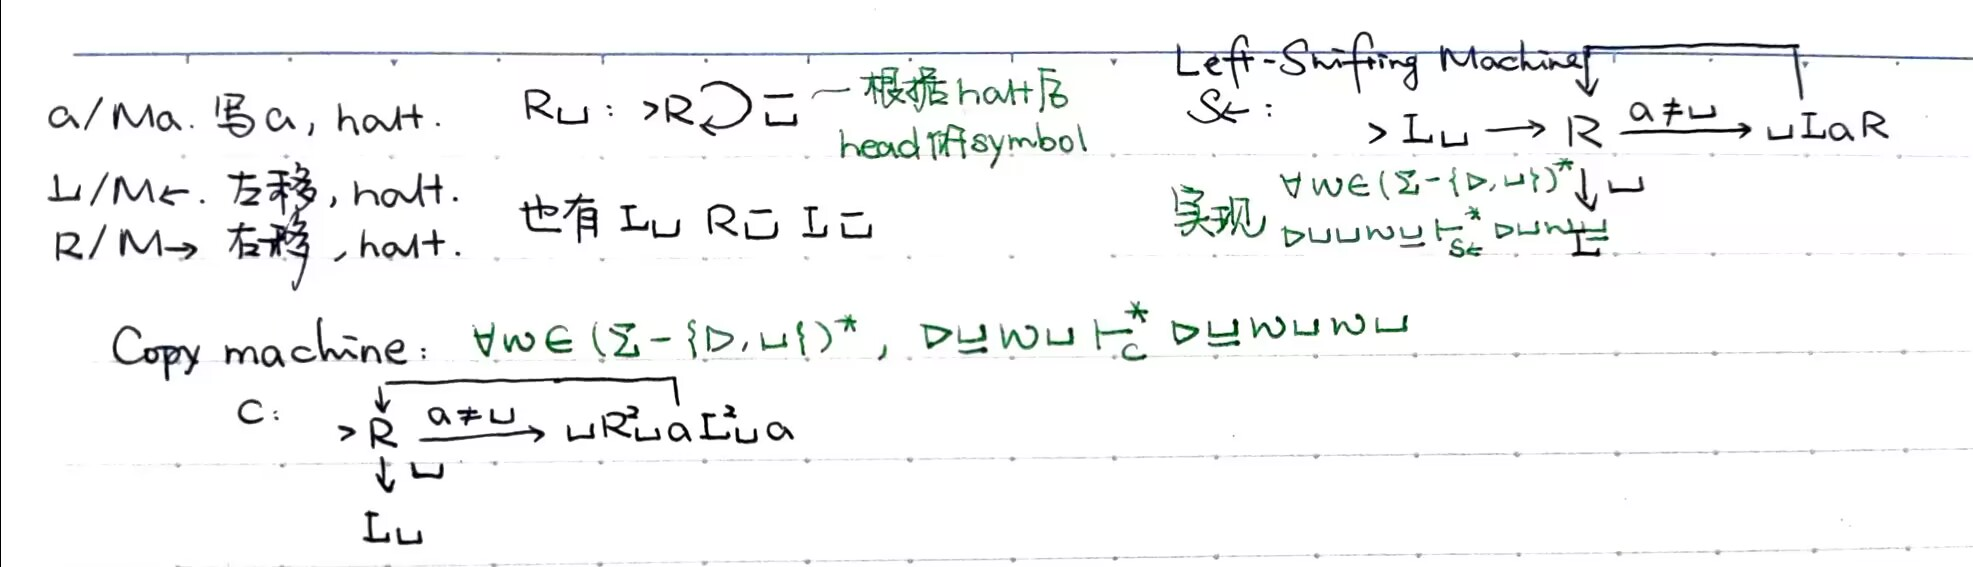 a/Ma. 写a, halt.
L/M←. 左移, halt.
R/M→ 右移, halt.
R⊔ : >R⟲ ⊔̅ — 根据halt后
head所指symbol
也有 L⊔ R⊔̅ L⊔̅
Left-Shifting Machine
S← :
>L⊔ → R a≠⊔ → ⊔LaR
↓⊔
L
实现 ∀w∈(Σ-{▷,⊔})*
▷⊔⊔w⊔̲ ⊢*S← ▷⊔w⊔̲
Copy machine: ∀w∈(Σ-{▷,⊔})*, ▷⊔̲w⊔ ⊢*C ▷⊔̲w⊔w⊔
C: >R a≠⊔ → ⊔R²⊔aL²⊔a
↓⊔
L⊔